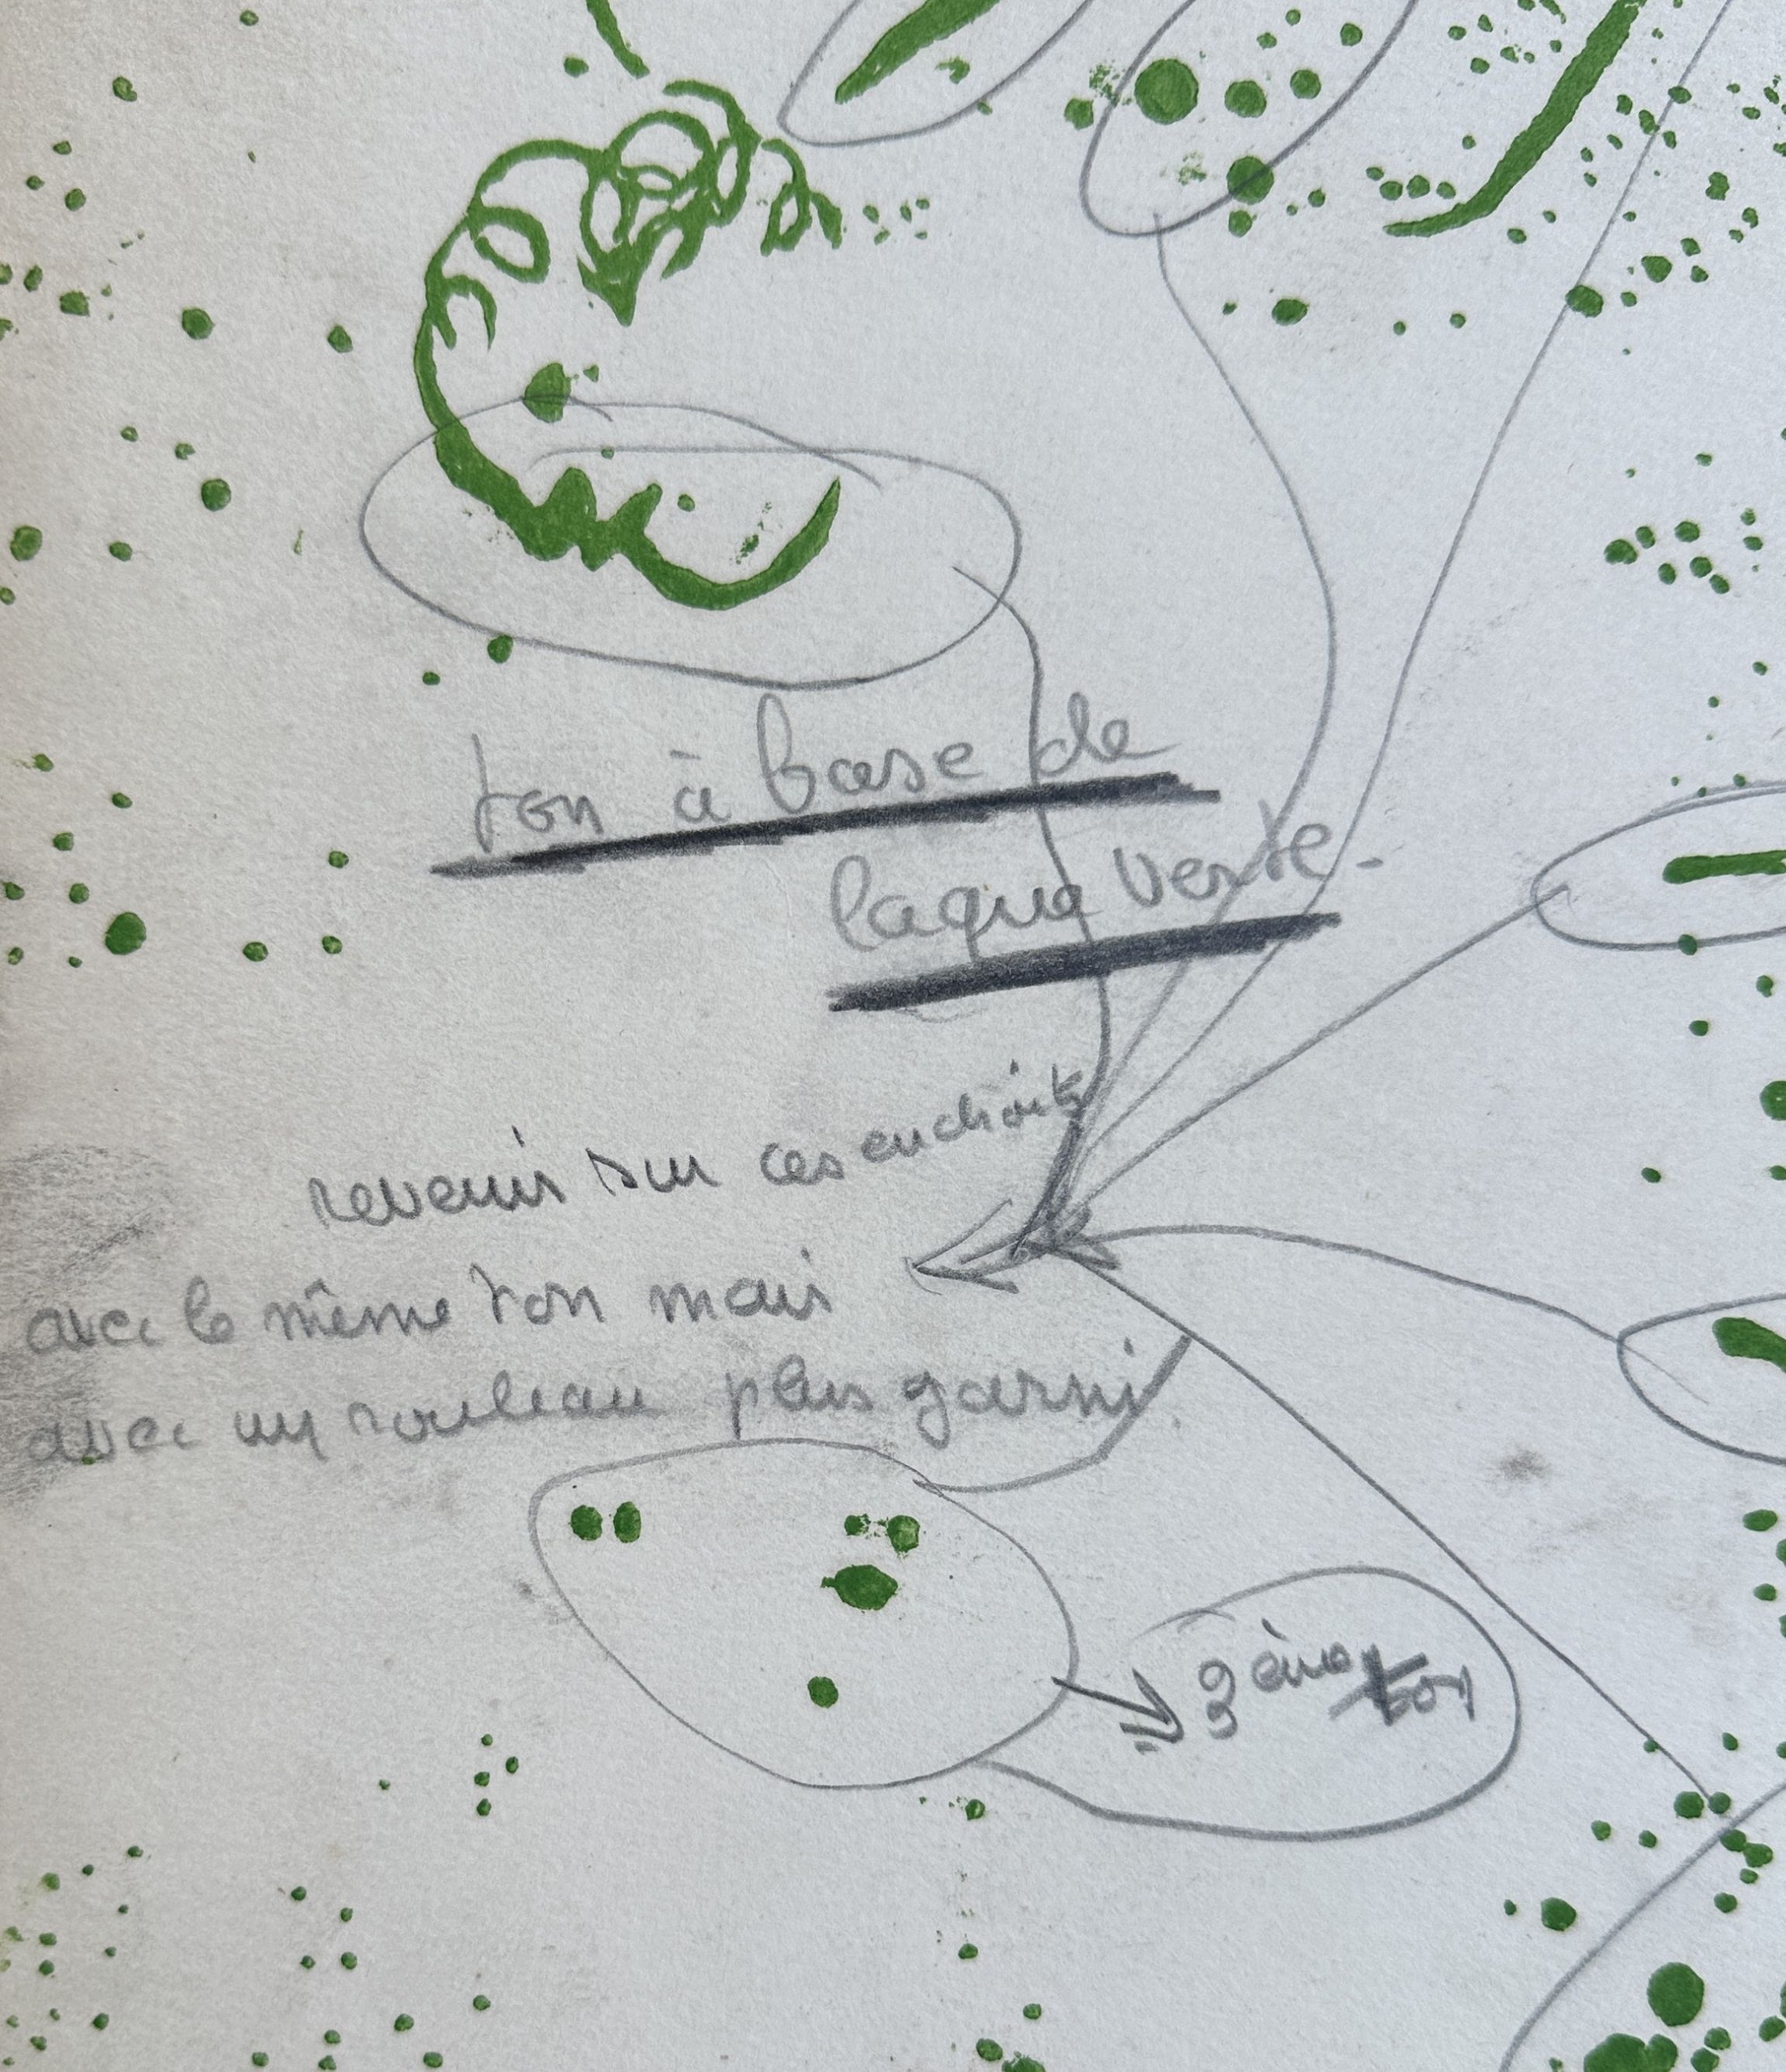 ton à base de
laque verte -
revenir sur ces endroits
avec le même ton mais
avec un rouleau plus garni.
3ème ton